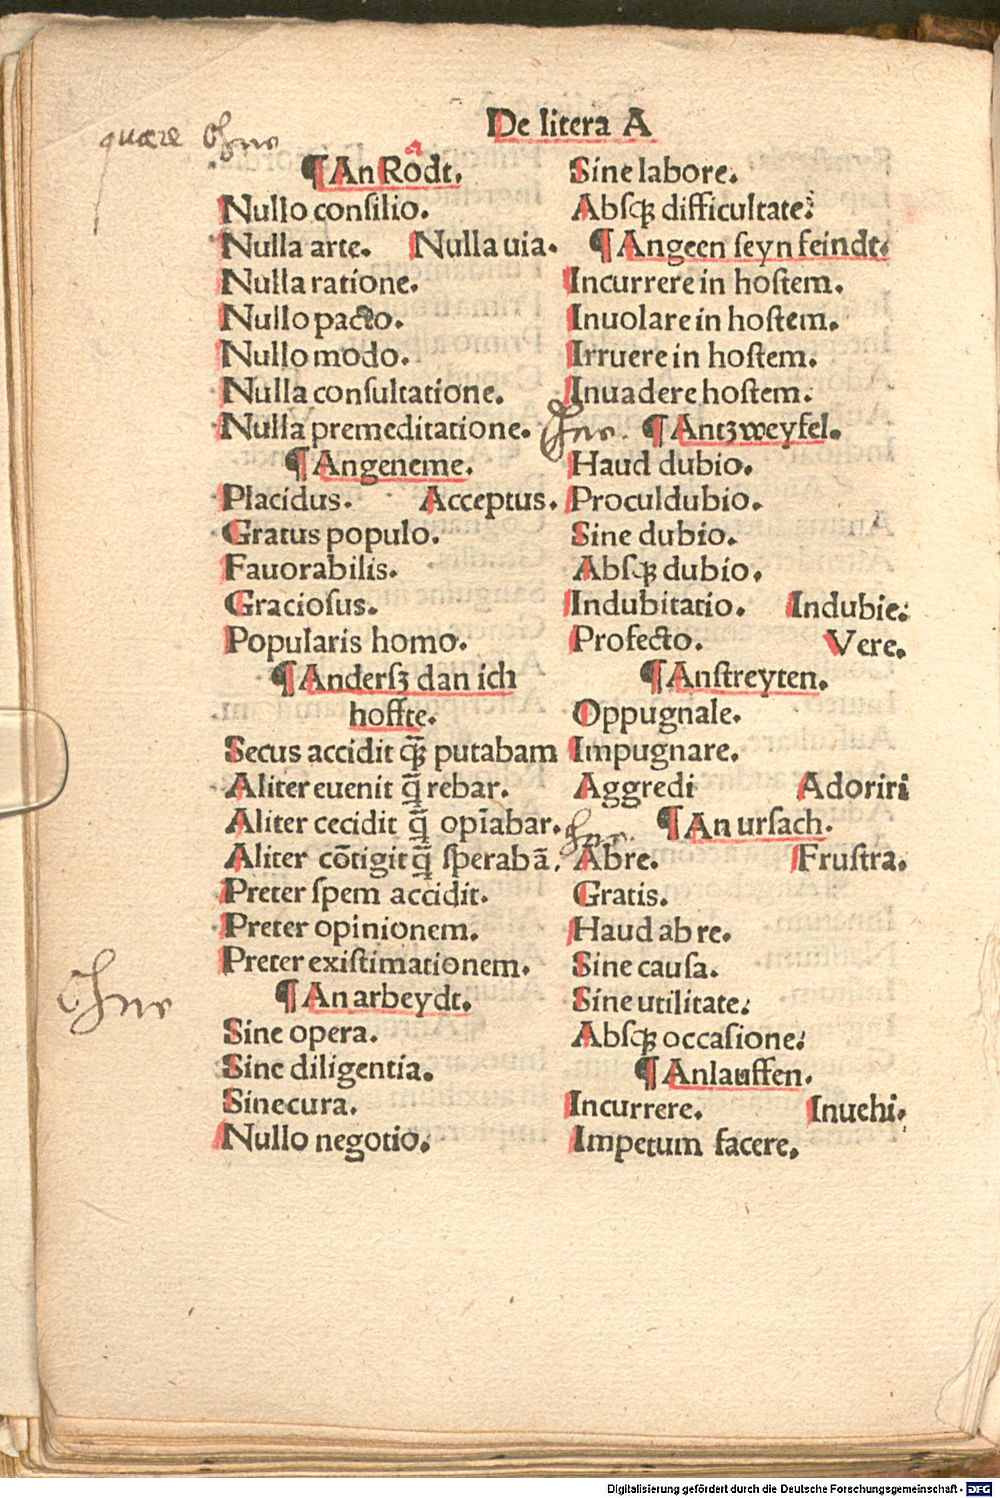 De litera A
quære ohne
¶ An Rodt.
Nullo consilio.
Nulla arte. Nulla uia.
Nulla ratione.
Nullo pacto.
Nullo modo.
Nulla consultatione.
Nulla premeditatione.
¶ Angeneme.
Placidus. Acceptus.
Gratus populo.
Fauorabilis.
Graciosus.
Popularis homo.
¶ Andersz dan ich
hoffte.
Secus accidit qȝ̃ putabam
Aliter euenit q̃ rebar.
Aliter cecidit q̃ opīabar.
Aliter cōtigit q̃ sperabā.
Preter spem accidit.
Preter opinionem.
Preter existimationem.
ohne
¶ An arbeydt.
Sine opera.
Sine diligentia.
Sine cura.
Nullo negotio.
Sine labore.
Absqȝ difficultate.
¶ Angeen seyn feindt.
Incurrere in hostem.
Inuolare in hostem.
Irruere in hostem.
Inuadere hostem.
ohne. ¶ Antzweyfel.
Haud dubio.
Proculdubio.
Sine dubio.
Absqȝ dubio.
Indubitatio. Indubie.
Profecto. Vere.
¶ Anstreyten.
Oppugnale.
Impugnare.
Aggredi Adoriri
ohne. ¶ An ursach.
Abre. Frustra.
Gratis.
Haud ab re.
Sine causa.
Sine utilitate.
Absqȝ occasione.
¶ Anlauffen.
Incurrere. Inuehi.
Impetum facere.
Digitalisierung gefördert durch die Deutsche Forschungsgemeinschaft - DFG